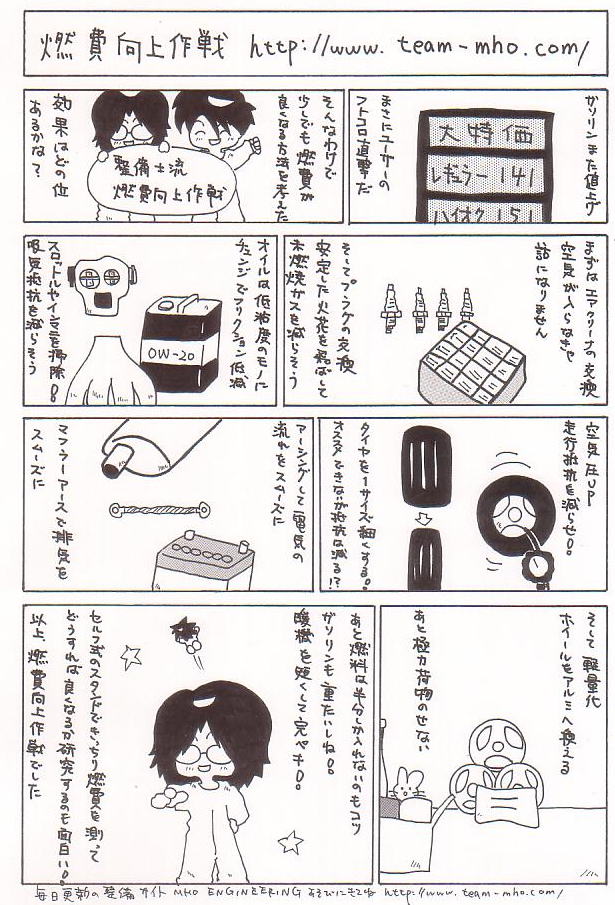 燃費向上作戦 http://www.team-mho.com/
ガソリンまた値上げ
大特価
レギュラー 141
ハイオク 151
まさにユーザーの
フトコロ直撃だ
そんなわけで
少しでも燃費が
良くなる方法を考えた
整備士流
燃費向上作戦
効果はどの位
あるかな?
まずはエアクリーナの交換
空気が入らなきゃ
話になりません
そしてプラグの交換
安定した火花を飛ばして
未燃焼ガスを減らそう
オイルは低粘度のモノに
チェンジでフリクション低減
0W-20
スロットルやインマニを掃除!!
吸気抵抗を減らそう
空気圧UP
走行抵抗を減らせ!!
タイヤを1サイズ細くする。
オススメできないが抵抗は減る!?
アーシングして電気の
流れをスムーズに
マフラーアースで排気を
スムーズに
そして軽量化
ホイールをアルミへ換える
あと極力荷物のせない
あと燃料は半分しか入れないのもコツ
ガソリンも重たいしね!!
暖機を短くして完ペキ!!
セルフ式のスタンドできっちり燃費を測って
どうすれば良くなるか研究するのも面白い!!
以上、燃費向上作戦でした
毎日更新の整備サイト MHO ENGINEERING あそびにきてね http://www.team-mho.com/